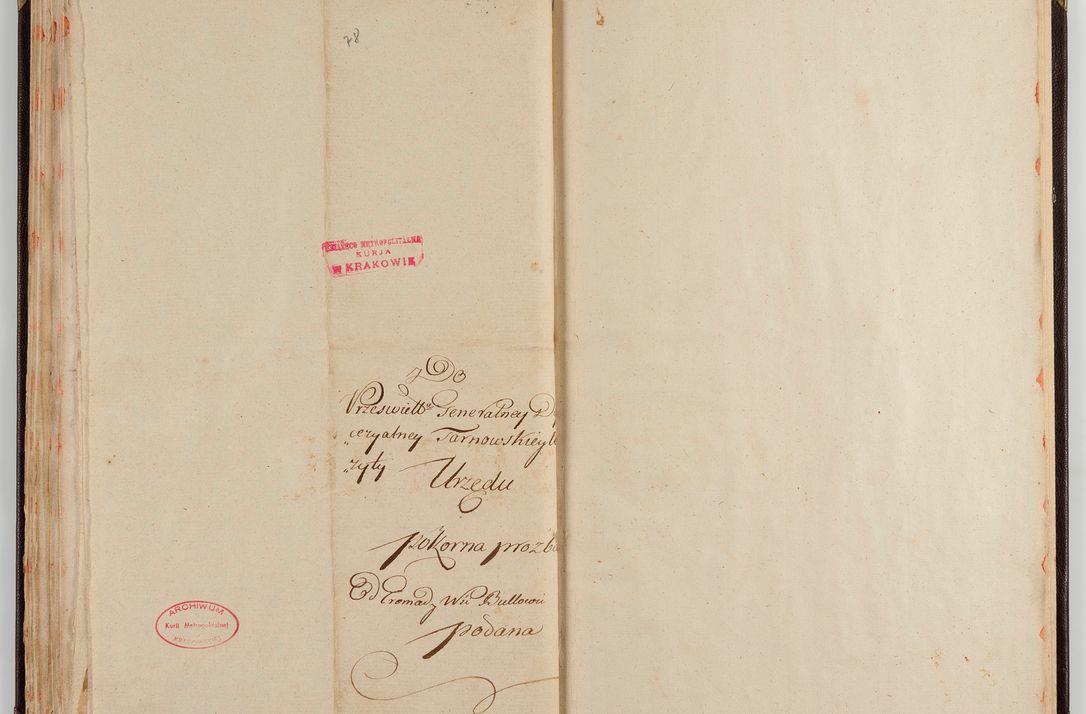 78
KSIĄŻĘCO METROPOLITALNA
KURJA
W KRAKOWIE
Do
Przeswiettey Generalney Dy
„cezyalney Tarnowskiey W
„zyty
Urzędu
pokorna prozba
Od Gromady Wsi Bullowic
podana
ARCHIWUM
Kurii Metropolitalnej
KRAKOWSKIEJ